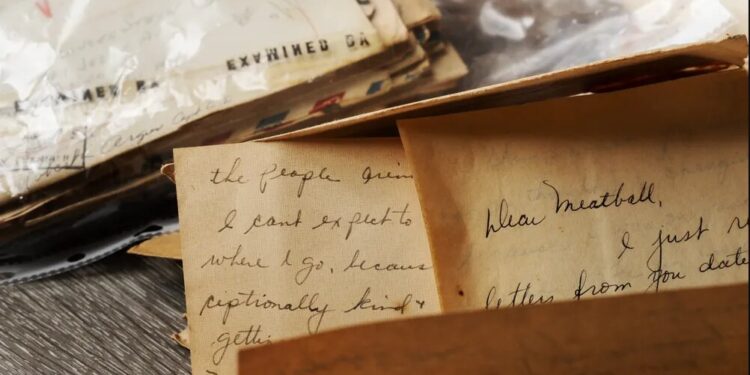 EXAMINED BA
EXAMINED BA
the people
I cant expect to
where I go, becaus
ciptionally kind &
gettin
Dear Meatball,
I just r
letters from you date